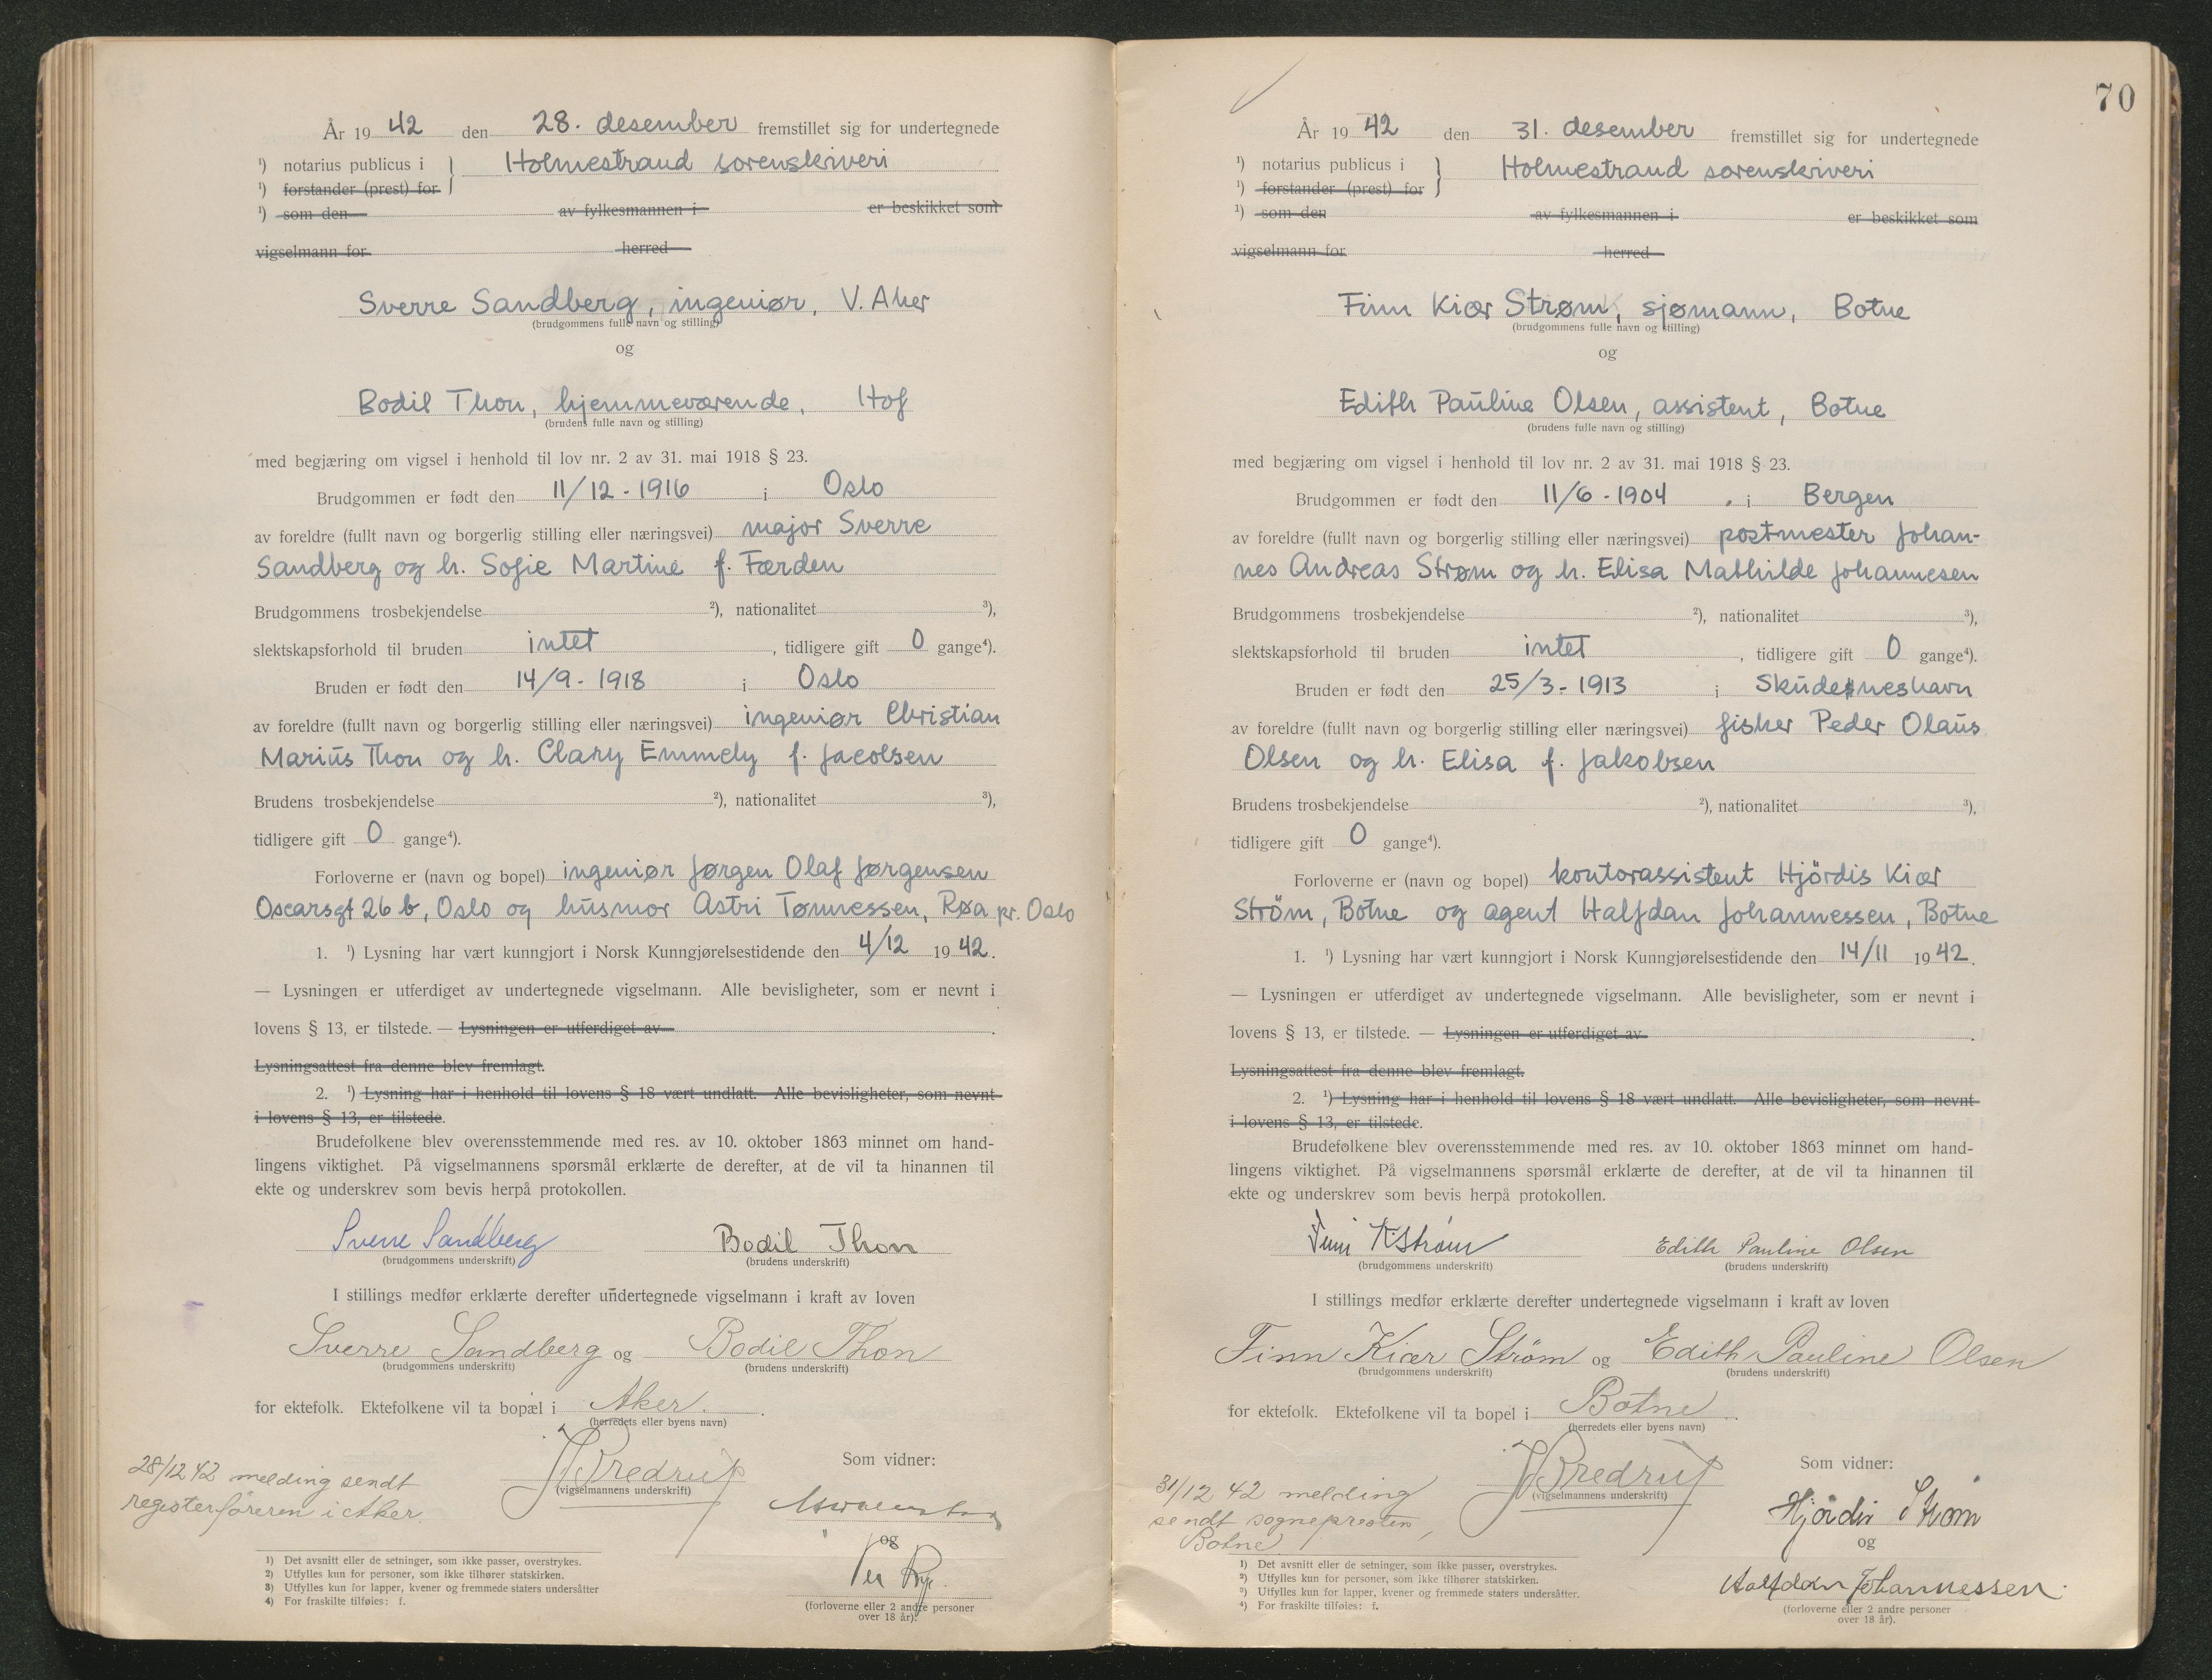 År 19 42 den 28. desember fremstillet sig for undertegnede
¹) notarius publicus i } Holmestrand sorenskriveri
¹) forstander (prest) for
¹) som den av fylkesmannen i er beskikket som
vigselmann for herred
Sverre Sandberg, ingeniør, V. Aker
(brudgommens fulle navn og stilling)
og
Bodil Thon, hjemmeværende, Hof
(brudens fulle navn og stilling)
med begjæring om vigsel i henhold til lov nr. 2 av 31. mai 1918 § 23.
Brudgommen er født den 11/12 - 1916 i Oslo
av foreldre (fullt navn og borgerlig stilling eller næringsvei) major Sverre
Sandberg og h. Sofie Martine f. Færden
Brudgommens trosbekjendelse ²), nationalitet ³),
slektskapsforhold til bruden intet, tidligere gift 0 gange⁴).
Bruden er født den 14/9 - 1918 i Oslo
av foreldre (fullt navn og borgerlig stilling eller næringsvei) ingeniør Christian
Marius Thon og h. Clary Emmely f. Jacobsen
Brudens trosbekjendelse ²), nationalitet ³),
tidligere gift 0 gange⁴).
Forloverne er (navn og bopel) ingeniør Jørgen Olaf Jørgensen
Oscarsgt 26 b, Oslo og husmor Astri Tønnessen, Røa pr. Oslo
1. ¹) Lysning har vært kunngjort i Norsk Kunngjørelsestidende den 4/12 19 42.
— Lysningen er utferdiget av undertegnede vigselmann. Alle bevisligheter, som er nevnt i
lovens § 13, er tilstede. — Lysningen er utferdiget av
Lysningsattest fra denne blev fremlagt.
2. ¹) Lysning har i henhold til lovens § 18 vært undlatt. Alle bevisligheter, som nevnt
i lovens § 13, er tilstede.
Brudefolkene blev overensstemmende med res. av 10. oktober 1863 minnet om hand-
lingens viktighet. På vigselmannens spørsmål erklærte de derefter, at de vil ta hinannen til
ekte og underskrev som bevis herpå protokollen.
Sverre Sandberg Bodil Thon
(brudgommens underskrift) (brudens underskrift)
I stillings medfør erklærte derefter undertegnede vigselmann i kraft av loven
Sverre Sandberg og Bodil Thon
(brudgommens underskrift) (brudens underskrift)
for ektefolk. Ektefolkene vil ta bopæl i Aker.
(herredets eller byens navn)
28/12 42 melding sendt
registerføreren i Aker.
JBredrup
(vigselmannens underskrift)
Som vidner:
og
Per
(forloverne eller 2 andre personer
over 18 år).
1) Det avsnitt eller de setninger, som ikke passer, overstrykes.
2) Utfylles kun for personer, som ikke tilhører statskirken.
3) Utfylles kun for lapper, kvener og fremmede staters undersåtter
4) For fraskilte tilføies: f.
70
År 19 42 den 31. desember fremstillet sig for undertegnede
¹) notarius publicus i } Holmestrand sorenskriveri
¹) forstander (prest) for
¹) som den av fylkesmannen i er beskikket som
vigselmann for herred
Finn Kiær Strøm, sjømann, Botne
(brudgommens fulle navn og stilling)
og
Edith Pauline Olsen, assistent, Botne
(brudens fulle navn og stilling)
med begjæring om vigsel i henhold til lov nr. 2 av 31. mai 1918 § 23.
Brudgommen er født den 11/6 - 1904 i Bergen
av foreldre (fullt navn og borgerlig stilling eller næringsvei) postmester Johan-
nes Andreas Strøm og h. Elisa Mathilde Johannesen
Brudgommens trosbekjendelse ²), nationalitet ³),
slektskapsforhold til bruden intet, tidligere gift 0 gange⁴).
Bruden er født den 25/3 - 1913 i Skudeneshavn
av foreldre (fullt navn og borgerlig stilling eller næringsvei) fisker Peder Olaus
Olsen og h. Elisa f. Jakobsen
Brudens trosbekjendelse ²), nationalitet ³),
tidligere gift 0 gange⁴).
Forloverne er (navn og bopel) kontorassistent Hjördis Kiær
Ström, Botne og agent Halfdan Johannessen, Botne
1. ¹) Lysning har vært kunngjort i Norsk Kunngjørelsestidende den 14/11 19 42.
— Lysningen er utferdiget av undertegnede vigselmann. Alle bevisligheter, som er nevnt i
lovens § 13, er tilstede. — Lysningen er utferdiget av
Lysningsattest fra denne blev fremlagt.
2. ¹) Lysning har i henhold til lovens § 18 vært undlatt. Alle bevisligheter, som nevnt
i lovens § 13, er tilstede.
Brudefolkene blev overensstemmende med res. av 10. oktober 1863 minnet om hand-
lingens viktighet. På vigselmannens spørsmål erklærte de derefter, at de vil ta hinannen til
ekte og underskrev som bevis herpå protokollen.
Finn K. Strøm Edith Pauline Olsen
(brudgommens underskrift) (brudens underskrift)
I stillings medfør erklærte derefter undertegnede vigselmann i kraft av loven
Finn Kiær Strøm og Edith Pauline Olsen
(brudgommens underskrift) (brudens underskrift)
for ektefolk. Ektefolkene vil ta bopel i Botne
(herredets eller byens navn)
31/12 42 melding
sendt sognepresten,
Botne.
JBredrup
(vigselmannens underskrift)
Som vidner:
Hjördis Strøm
og
Halfdan Johannessen.
(forloverne eller 2 andre personer
over 18 år).
1) Det avsnitt eller de setninger, som ikke passer, overstrykes.
2) Utfylles kun for personer, som ikke tilhører statskirken.
3) Utfylles kun for lapper, kvener og fremmede staters undersåtter.
4) For fraskilte tilføies: f.